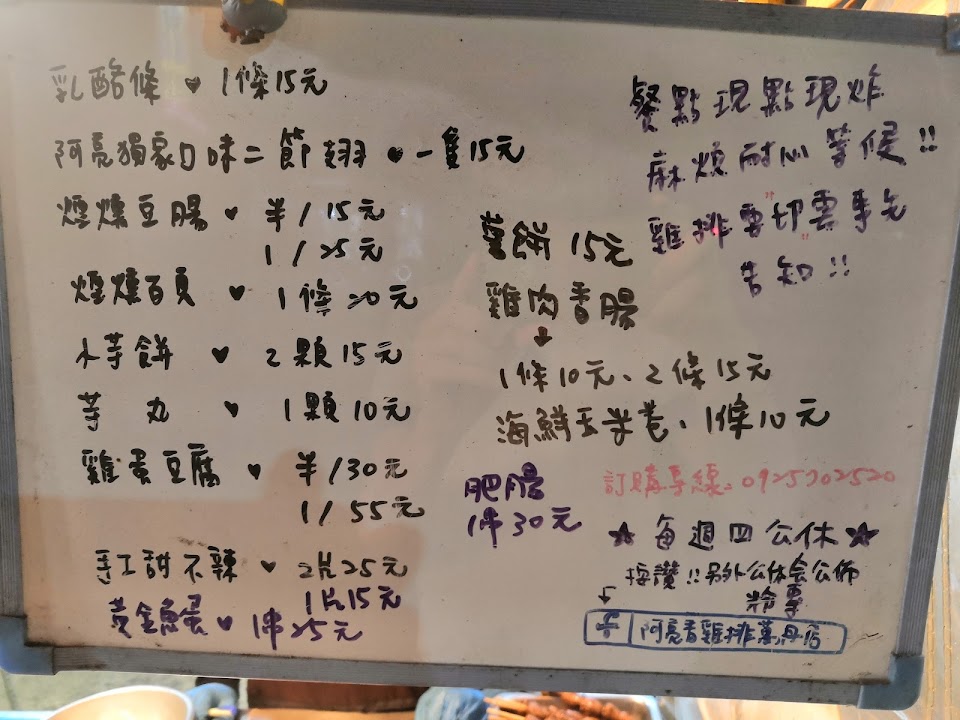 乳酪條 ♥ 1條15元
阿亮獨家口味二節翅 ♥ 一隻15元
煙燻豆腸 ♥ 半/15元
1/25元
煙燻百頁 ♥ 1條20元
小芋餅 ♥ 2顆15元
芋丸 ♥ 1顆10元
雞蛋豆腐 ♥ 半/30元
1/55元
手工甜不辣 ♥ 2片25元
1片15元
黃金魚蛋 ♥ 1串25元
餐點現點現炸
麻煩耐心等候!!
雞排要"切"需事先
告知!!
薯餅 15元
雞肉香腸
↓
1條10元、2條15元
海鮮玉米卷、1條10元
肥腸
1串30元
訂購專線:0925702520
★每週四公休★
按讚!!另外公休會公佈
粉專
阿亮香雞排萬丹店